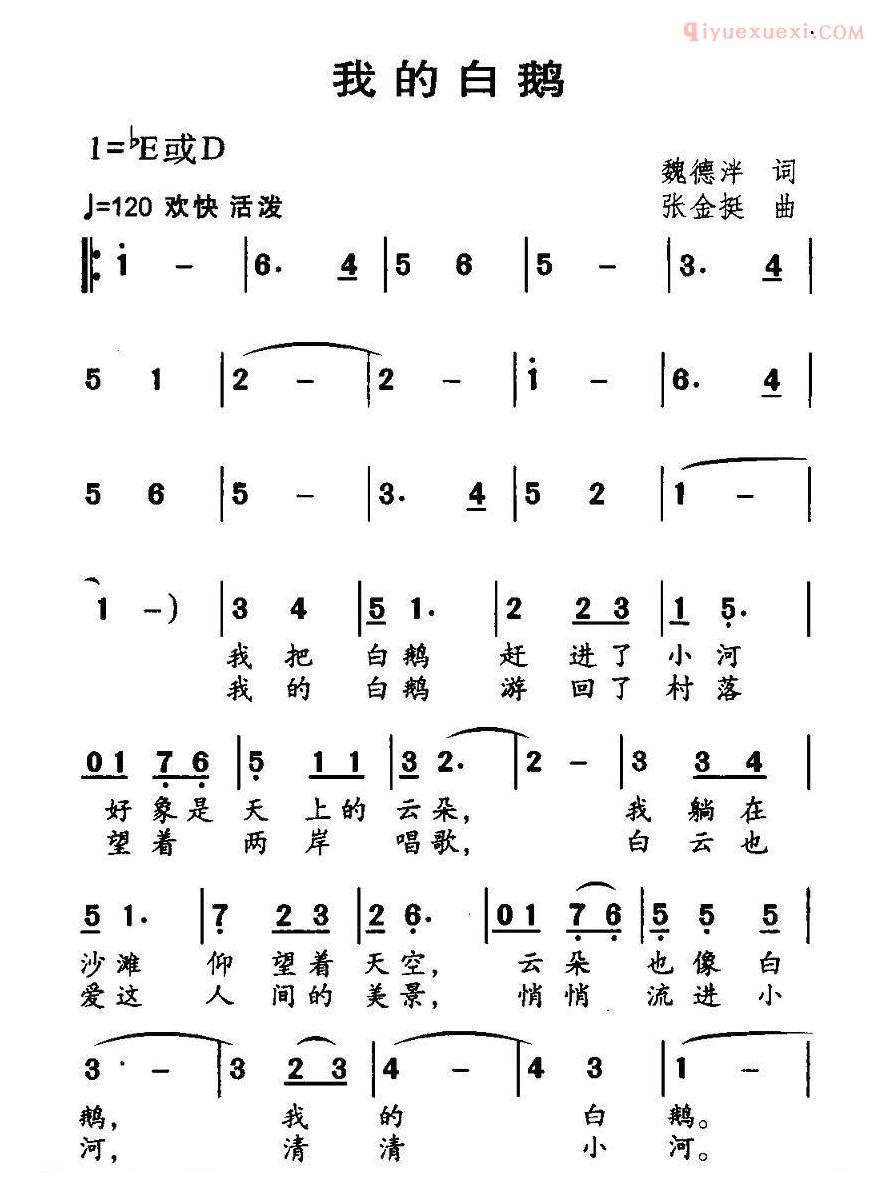 qiyuexuexi.COM
我的白鹅
1=♭E或D
魏德泮 词
♩=120 欢快 活泼
张金挺 曲
‖: i̇ – | 6. 4̲ | 5 6 | 5 – | 3. 4̲ |
5 1 | 2 – | 2 – | i̇ – | 6. 4̲ |
5 6 | 5 – | 3. 4̲ | 5 2 | 1 – |
1 –) | 3 4 | 5̲ 1. | 2 2̲3̲ | 1̲ 5̣. |
我把 白鹅 赶 进了 小河
我的 白鹅 游 回了 村落
0̲1̲ 7̣̲6̣̲ | 5̣ 1̲1̲ | 3̲ 2. | 2 – | 3 3̲4̲ |
好象是 天 上的 云朵, 我 躺在
望着 两 岸 唱歌, 白 云也
5̲ 1. | 7̣̲ 2̲3̲ | 2̲ 6̣. | 0̲1̲ 7̣̲6̣̲ | 5̣̲ 5̣ 5̲ |
沙滩 仰 望着 天空, 云朵 也像白
爱这 人 间的 美景, 悄悄 流进小
3 · – | 3 2̲3̲ | 4 – | 4 3 | 1 – |
鹅, 我 的 白 鹅。
河, 清 清 小 河。